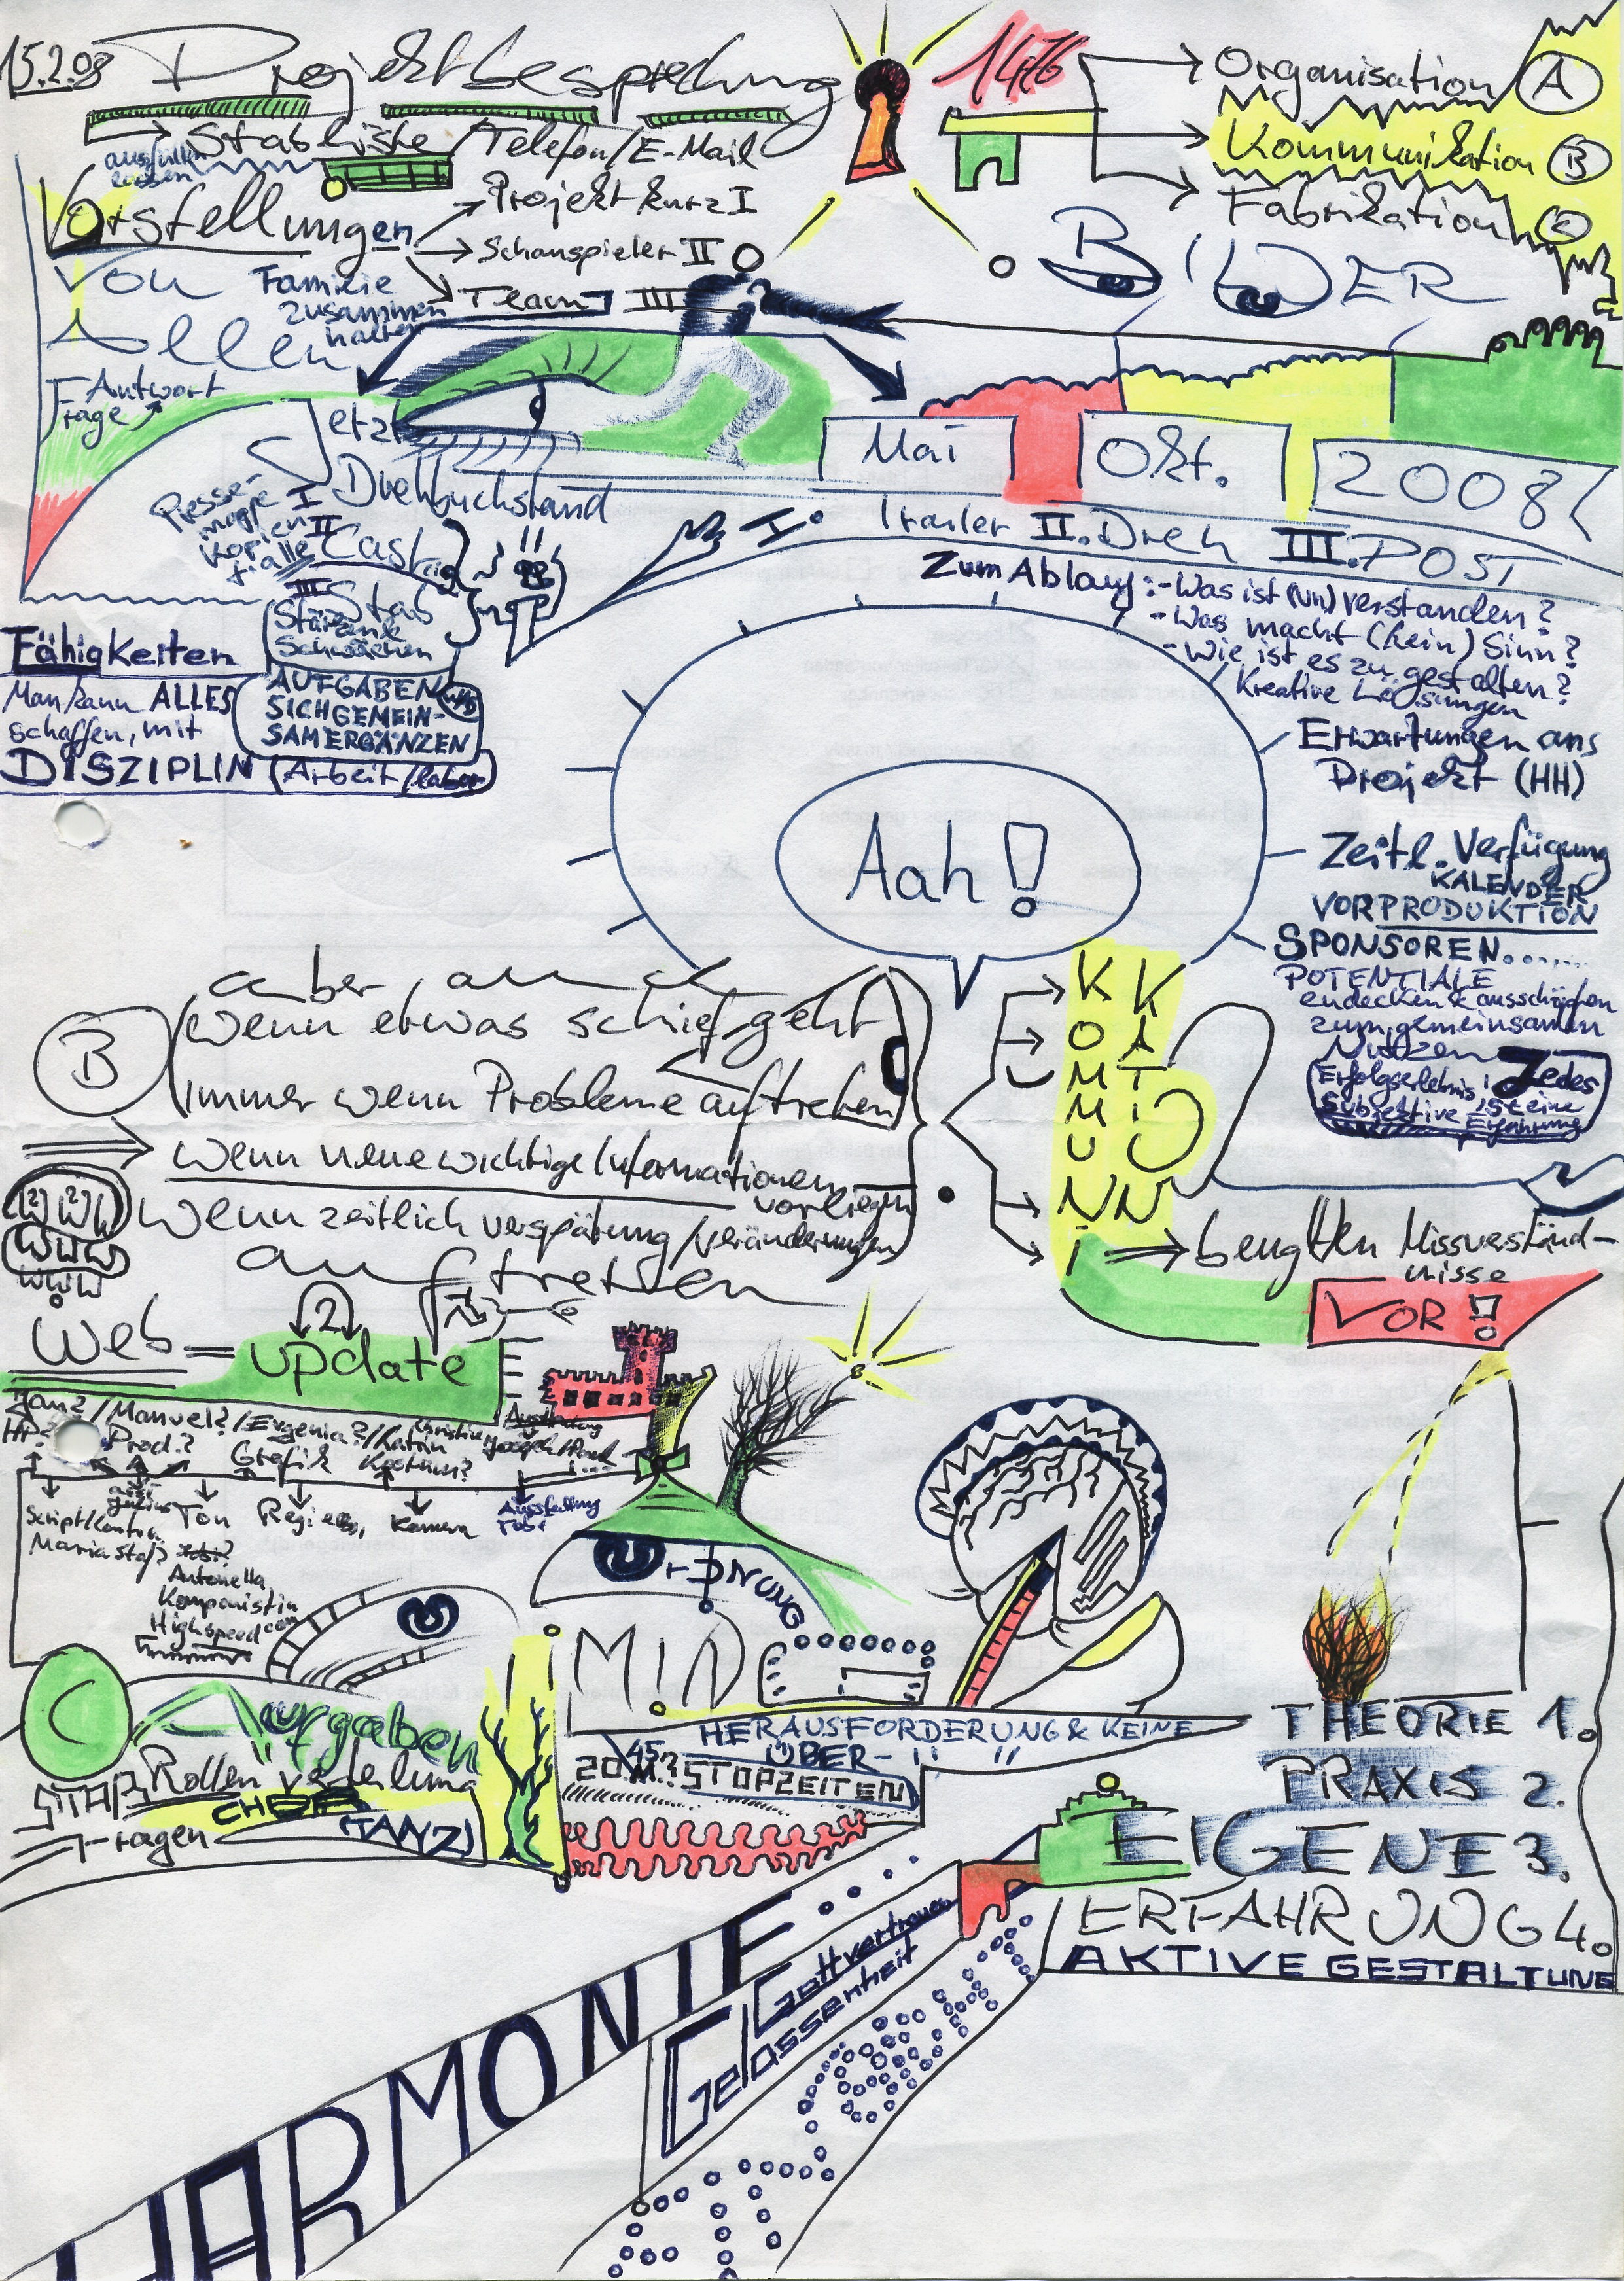 15.2.08 Projektbesprechung
1476
Organisation A
Kommunikation B
Fabrikation C
Stabliste/Telefon/E-Mail
ausfüllen
lassen
Vorstellungen
Projekt kurz I
Schauspieler II
Team III
Von
Allen
Familie
zusammen
halten
BilDER
Antwort
Frage
Jetzt
Mai
Okt.
2008
Presse-
mappe
kopieren
f. alle
I Drehbuchstand
II Cast
III Stab
Stärken &
Schwächen
I. Trailer II. Dreh III. POST
Zum Ablauf: - Was ist (un) verstanden?
- Was macht (kein) Sinn?
- Wie ist es zu gestalten?
Kreative Lösungen
Fähigkeiten
Man kann ALLES
schaffen, mit
DISZIPLIN (Arbeit/labor)
AUFGABEN
SICH GEMEIN-
SAM ERGÄNZEN
Erwartungen ans
Projekt (HH)
Aah!
Zeitl. Verfügung
KALENDER
VORPRODUKTION
SPONSOREN......
POTENTIALE
endecken & ausschöpfen
zum gemeinsamen
Nutzen
Erfolgserlebnis: Jedes
ist eine
Subjektive Erfahrung
aber, auch
B
wenn etwas schief geht
immer wenn Probleme auftreten
wenn neue wichtige Informationen
vorliegen
wenn zeitlich verspätung/veränderungen
auftreten
KOMMUNi
KATiON
beugten Missverständ-
nisse
VOR!
WWW
WWW
Web = update
2
Jan?/Manuel?/Evgenia?/Katrin
HP?
Prod.?
Grafik
Kostüm?
Script/Kontin.
Maria Staf?
Ton
Regieass.
Kamera
Ausstattung
Tobi
Antonella
Komponistin
Highspeed
OrDNUNG
MiND
C
Aufgaben
Rollenverteilung
STAB
Fragen
CHOR
(TANZ)
HERAUSFORDERUNG & KEINE
ÜBER-
45
20 M.? STOPZEITEN
THEORIE 1.
PRAXIS 2.
EIGENE 3.
ERFAHRUNG 4.
AKTIVE GESTALTUNG
HARMONIE...
Gottvertrauen
Gelassenheit